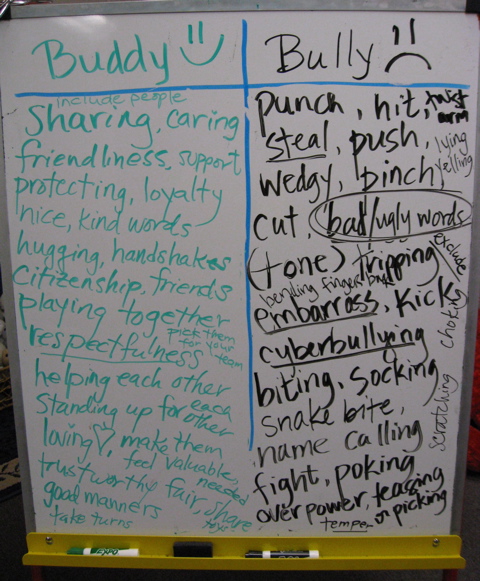 Buddy
include people
Sharing, caring
friendliness, support
protecting, loyalty
nice, kind words
hugging, handshakes
Citizenship, friends
playing together
pick them
for your
team
respectfulness
helping each other
Standing up for each
other
loving, make them
feel valuable,
needed
trustworthy fair, share
toys
good manners
take turns
Bully
punch, hit, twist
arm
steal, push,
lying
yelling
wedgy, pinch
cut, bad/ugly words
(tone) tripping
exclude
bending fingers back
embarrass, kicks
choking
cyberbullying
biting, socking
scratching
snake bite,
name calling
fight, poking
overpower, teasing
or picking
temper
EXPO
EXPO